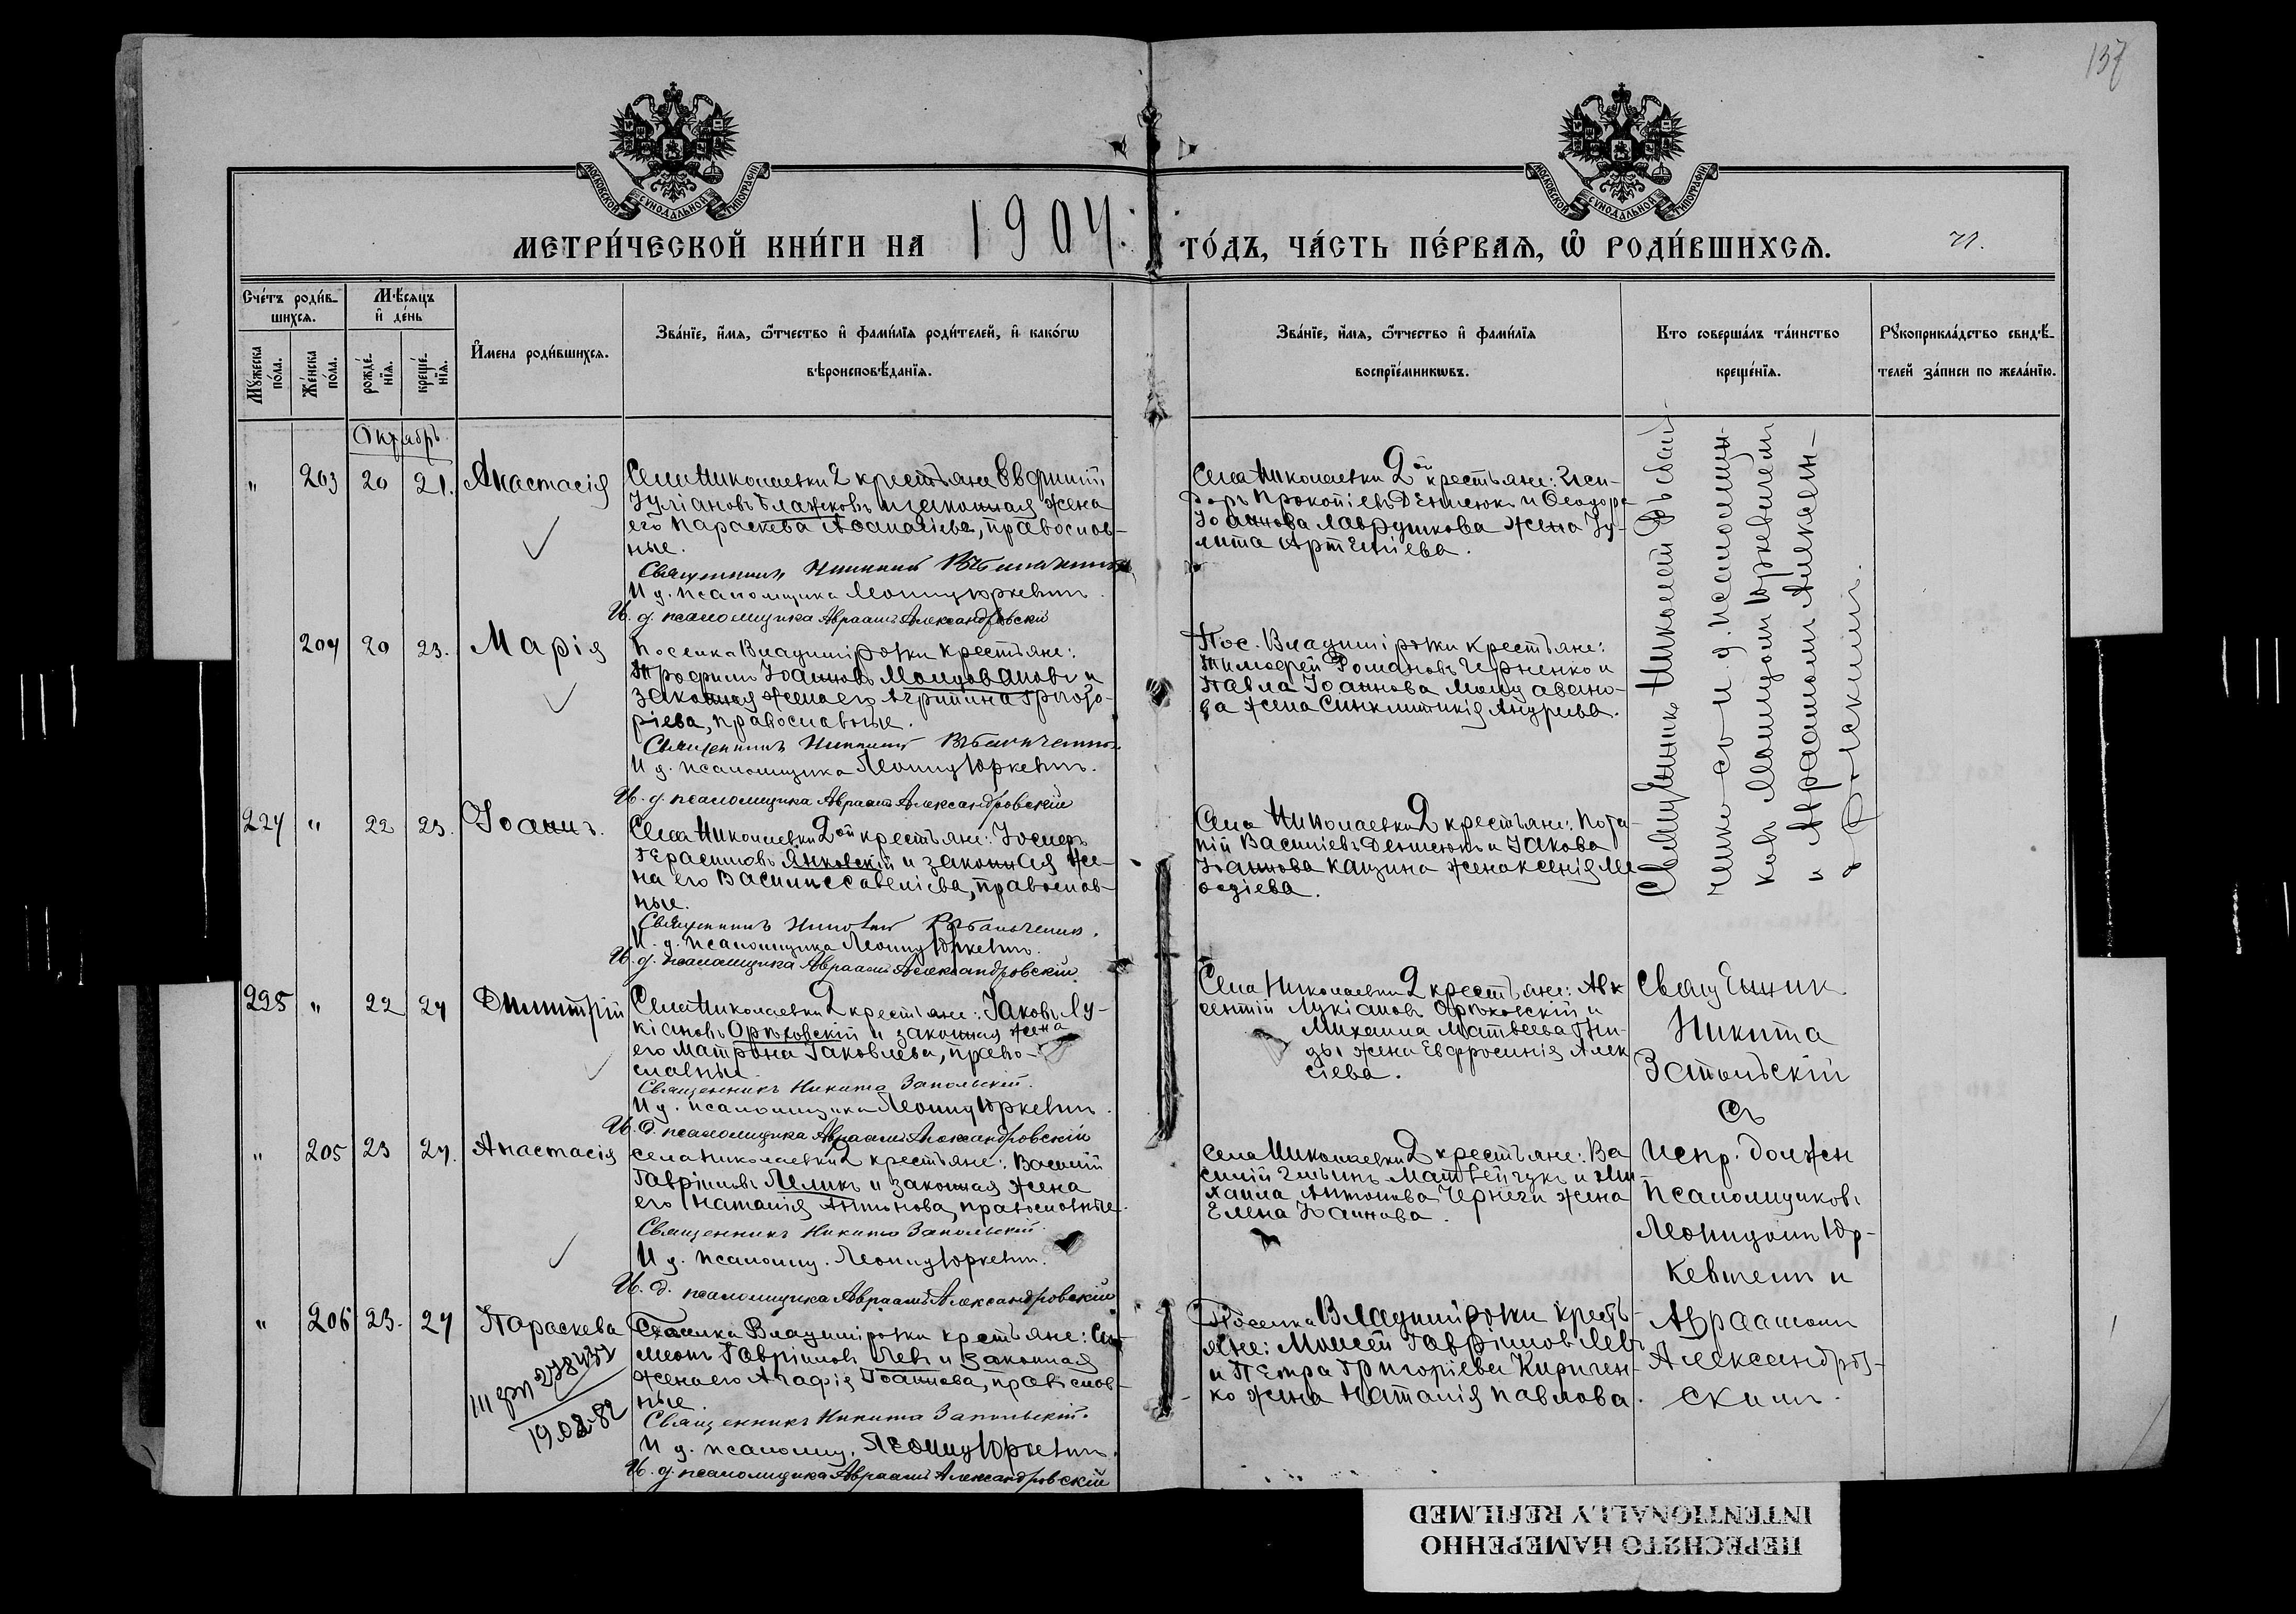 137
МОСКОВСКОЙ СѴНОДАЛЬНОЙ ТИПОГРАФІИ
МОСКОВСКОЙ СѴНОДАЛЬНОЙ ТИПОГРАФІИ
МЕТРИ́ЧЕСКОЙ КНИ́ГИ НА 1904. ГО́ДЪ, ЧА́СТЬ ПЕ́РВАѦ, Ѽ РОДИ́ВШИХСѦ.
Сче́тъ роди́в-
шихсѧ.
Мꙋ́жеска по́ла.
Же́нска по́ла.
Мѣ́сѧцъ
и҆ де́нь
рожде́нїѧ.
креще́нїѧ.
И҆мена роди́вшихсѧ.
Зва́нїе, и҆́мѧ, ѻ҆́тчество и҆ фами́лїѧ роди́телей, и҆ како́гѡ
вѣроисповѣ́данїѧ.
Зва́нїе, и҆́мѧ, ѻ҆́тчество и҆ фами́лїѧ
воспрїе́мникѡвъ.
Кто соверша́лъ та́инство
креще́нїѧ.
Рꙋкоприкла́дство свидѣ́-
телей за́писи по жела́нїю.
Октябрь
" 203 20 21. Анастасія
Села Николаевки 2 крестьяне Евфимій
Іуліановъ Блажковъ и законная жена
его Параскева Аѳанасіева, православ-
ные.
Священникъ Николай
И д. псаломщика Леонид Юркевичъ.
И. д. псаломщика Авраамъ Александровскій
Села Николаевки 2ой крестьяне: Иси-
доръ Прокопіевъ Денисюкъ и Ѳеодора
Іоаннова Лаврушкова жена Іу-
лита Артеміева.
204 20 23. Марія
Поселка Владиміровки крестьяне:
Трофимъ Іоанновъ Молдовановъ и
законная жена его Агрипина Григо-
ріева, православные.
Священникъ Николай
И д. псаломщика Леонид Юркевичъ.
И. д. псаломщика Авраамъ Александровскій
Пос. Владиміровки крестьяне:
Тимофей Романовъ Черненко и
Павла Іоаннова Молдавано-
ва жена Синклитикія Андреева.
Священникъ Николай
ковъ Леонидомъ Юркевичемъ
и Авраамомъ Алексан-
дровскимъ.
224 " 22 23. Іоаннъ.
Села Николаевки 2ой крестьяне: Іосифъ
Герасимовъ Янковскій и законная же-
на его Васились Савеліева, православ-
ные.
Священникъ Николай
И. д. псаломщика Леонид Юркевичъ.
И. д. псаломщика Авраамъ Александровскій
Села Николаевки 2 крестьяне: Пота-
пій Василіевъ Денисюкъ и Іакова
Іоаннова Кацина жена Ксенія Ме-
ѳодіева.
225 " 22 24 Димитрій
Села Николаевки 2 крестьяне: Іаковъ Лу-
кіановъ Орѣховскій и законная жена
его Матрона Іаковлева, право-
славные.
Священникъ Никита Запольскій.
И д. псаломщика Леонид Юркевичъ.
И. д. псаломщика Авраамъ Александровскій
Села Николаевки 2 крестьяне: Авк-
сентій Лукіановъ Орѣховскій и
Михаила Матвеева Гни-
ды жена Евфросинія Алек
сіева.
Священник
Никита
Запольскій
съ
Испр. должн
псаломщиковъ
Леонидомъ Юр-
кевичемъ и
Авраамомъ
Александров-
скимъ.
" 205 23 24. Анастасія
Села Николаевки 2 крестьяне: Василій
Гавріиловъ Лемикъ и законная жена
его Наталія Антонова, православные.
Священникъ Никита Запольскій.
И д. псаломщ. Леонид Юркевичъ.
И. д. псаломщика Авраамъ Александровскій
Села Николаевки 2 крестьяне: Ва
силій Матвейчукъ и Ми-
хаила Антонова Чернеги жена
Елена Іоаннова.
" 206 23. 24 Параскева
III 278432
19.02.82
Поселка Владиміровки крестьяне: Си-
меонъ Гавріиловъ Левъ и законная
жена его Агафія Іоаннова, православ-
ные.
Священникъ Никита Запольскій.
И д. псаломщ. Леонид Юркевичъ.
И. д. псаломщика Авраамъ Александровскій
Поселка Владиміровки кресть-
яне: Моисей Гавріиловъ Левъ
и Петра Григоріева Киричен-
ко жена Наталія Павлова.
ПЕРЕСНЯТО НАМЕРЕННО
INTENTIONALLY REFILMED